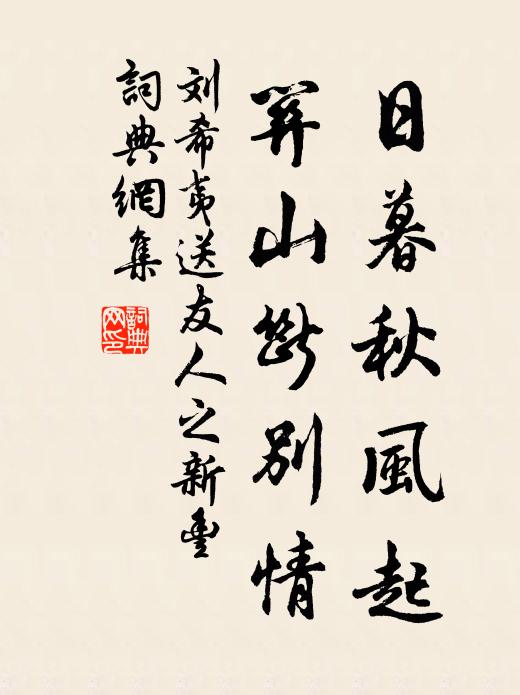 日暮秋風起
關山斷別情
刘希夷送友人之新豐
詞典網集
詞典网印